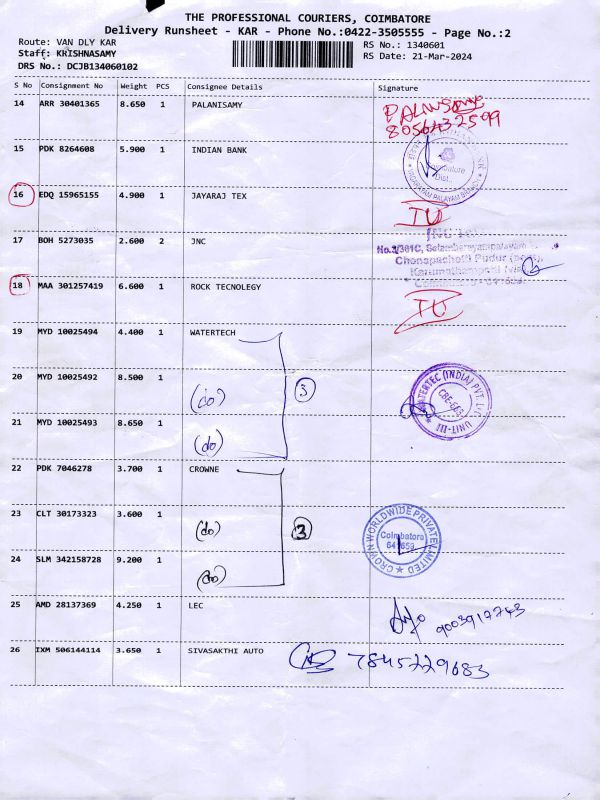 THE PROFESSIONAL COURIERS, COIMBATORE
Delivery Runsheet - KAR - Phone No.:0422-3505555 - Page No.:2
Route: VAN DLY KAR RS No.: 1340601
Staff: KRISHNASAMY RS Date: 21-Mar-2024
DRS No.: DCJB134060102
S No Consignment No Weight PCS Consignee Details Signature
14 ARR 30401365 8.650 1 PALANISAMY
PALANISAMY
8056432509
15 PDK 8264608 5.900 1 INDIAN BANK
Coimbatore
Dist.
16 EDQ 15965155 4.900 1 JAYARAJ TEX
17 BOH 5273035 2.600 2 JNC
No.3/381C, Selambarayampalayam
Chenapachetti Pudur
18 MAA 301257419 6.600 1 ROCK TECNOLEGY
19 MYD 10025494 4.400 1 WATERTECH
20 MYD 10025492 8.500 1 (do) 3
WATERTEC (INDIA) PVT. LTD
UNIT-III
21 MYD 10025493 8.650 1 (do)
22 PDK 7046278 3.700 1 CROWNE
23 CLT 30173323 3.600 1 (do) 3
CROWN WORLDWIDE PRIVATE LIMITED
Coimbatore
641659
24 SLM 342158728 9.200 1 (do)
25 AMD 28137369 4.250 1 LEC
9003917743
26 IXM 506144114 3.650 1 SIVASAKTHI AUTO 7845229683